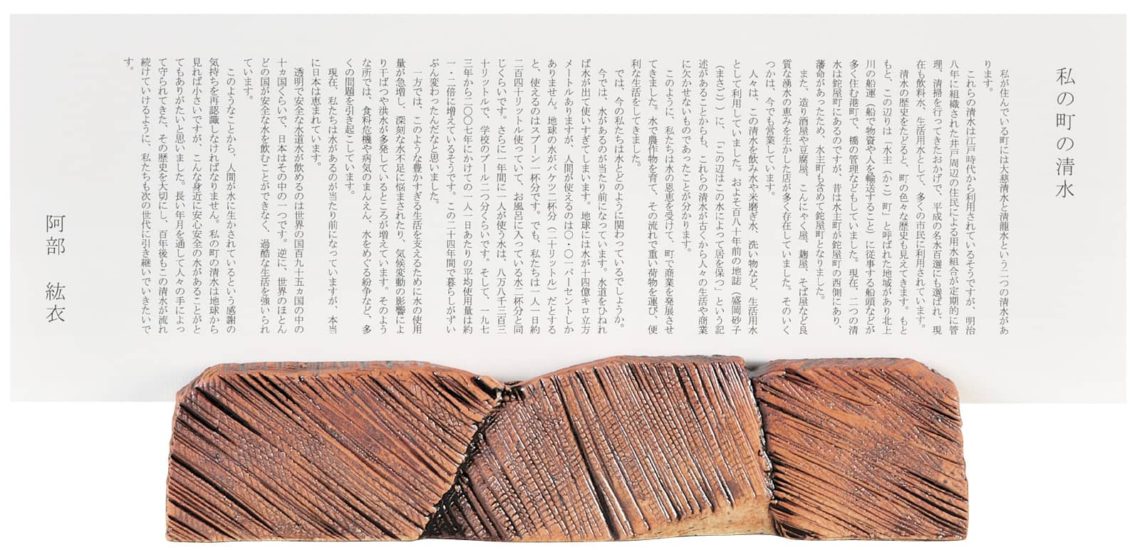 私の町の清水
私が住んでいる町には大慈清水と清龍水という二つの清水があ
ります。
これらの清水は江戸時代から利用されているそうですが、明治
八年に組織された井戸周辺の住民による用水組合が定期的に管
理、清掃を行ってきたおかげで、平成の名水百選にも選ばれ、現
在も飲料水、生活用水として、多くの市民に利用されています。
清水の歴史をたどると、町の色々な歴史も見えてきます。もと
もと、この辺りは「水主（かこ）町」と呼ばれた地域があり北上
川の船運（船で物資や人を輸送すること）に従事する船頭などが
多く住む港町で、橋の管理などもしていました。現在、二つの清
水は鉈屋町にあるのですが、昔は水主町が鉈屋町の西側にあり、
藩命があったため、水主町も含めて鉈屋町となりました。
また、造り酒屋や豆腐屋、こんにゃく屋、麹屋、そば屋など良
質な湧水の恵みを生かした店が多く存在していました。そのいく
つかは、今でも営業しています。
人々は、この清水を飲み水や米磨ぎ水、洗い物など、生活用水
として利用していました。およそ百八十年前の地誌（盛岡砂子
（まさご））に、「この辺はこの水によって居を保つ」という記
述があることからも、これらの清水が古くから人々の生活や商業
に欠かせないものであったことが分かります。
このように、私たちは水の恩恵を受けて、町で商業を発展させ
てきました。水で農作物を育て、その流れで重い荷物を運び、便
利な生活をしてきました。
では、今の私たちは水とどのように関わっているでしょうか。
今では、水があるのが当たり前になっています。水道をひねれ
ば水が出て使いすぎてしまいます。地球には水が十四億キロ立方
メートルありますが、人間が使えるのは〇・〇一パーセントしか
ありません。地球の水がバケツ二杯分（二十リットル）だとする
と、使えるのはスプーン一杯分です。でも、私たちは一人一日約
二百四十リットル使っていて、お風呂に入っている水二杯分と同
じくらいです。さらに一年間に一人が使う水は、八万八千三百三
十リットルで、学校のプール二つ分くらいです。そして、一九七
三年から二〇〇七年にかけての一人一日あたりの平均使用量は約
一・二倍に増えているそうです。この二十四年間で暮らしがずい
ぶん変わったんだなと思いました。
一方では、このような豊かすぎる生活を支えるために水の使用
量が急増し、深刻な水不足に悩まされたり、気候変動の影響によ
り干ばつや洪水が多発しているところが増えています。そのよう
な所では、食料危機や病気のまんえん、水をめぐる紛争など、多
くの問題を引き起こしています。
現在、私たちは水があるのが当たり前になっていますが、本当
に日本は恵まれています。
透明で安全な水道水が飲めるのは世界の国百九十五ヵ国の中の
十ヵ国くらいで、日本はその中の一つです。逆に、世界のほとん
どの国が安全な水を飲むことができなく、過酷な生活を強いられ
ています。
このようなことから、人間が水に生かされているという感謝の
気持ちを再認識しなければなりません。私の町の清水は地球から
見れば小さいですが、こんな身近に安心安全の水があることがと
てもありがたいと思いました。長い年月を通して人々の手によっ
て守られてきた、その歴史を大切にし、百年後もこの清水が流れ
続けていけるように、私たちも次の世代に引き継いでいきたいで
す。
阿部　紘衣